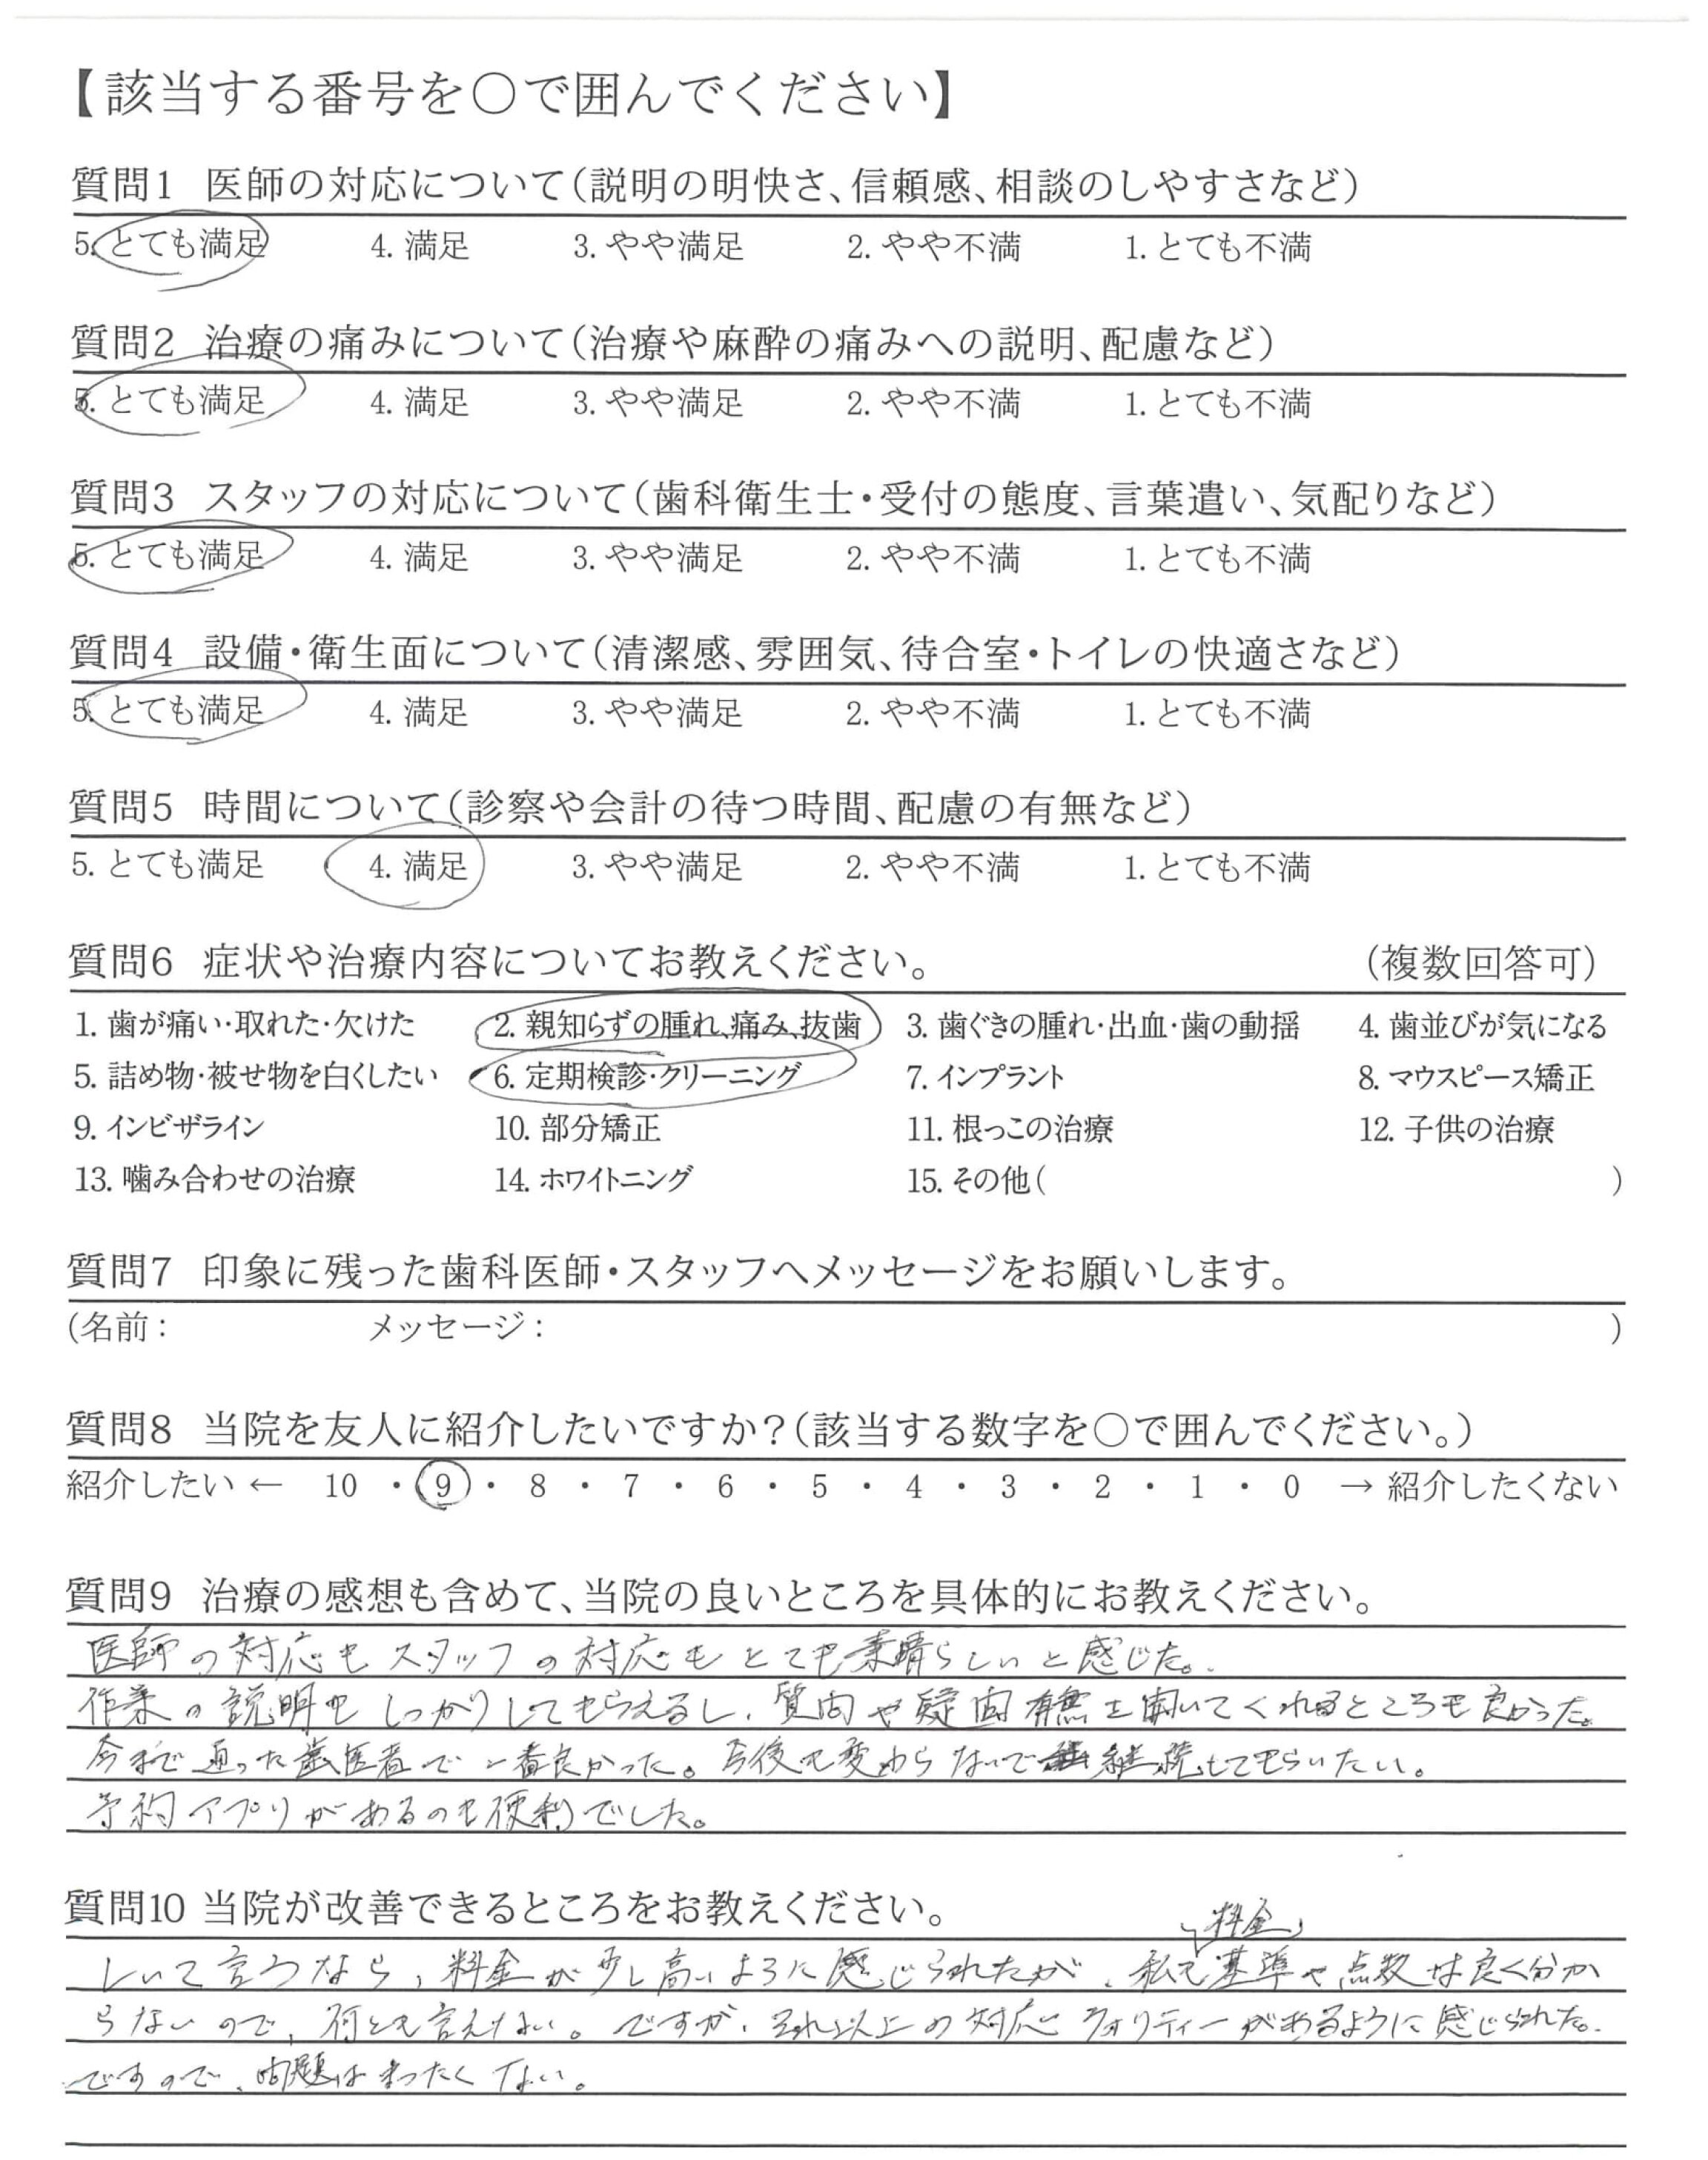 【該当する番号を○で囲んでください】
質問1 医師の対応について(説明の明快さ、信頼感、相談のしやすさなど)
5. とても満足 4. 満足 3. やや満足 2. やや不満 1. とても不満
質問2 治療の痛みについて(治療や麻酔の痛みへの説明、配慮など)
5. とても満足 4. 満足 3. やや満足 2. やや不満 1. とても不満
質問3 スタッフの対応について(歯科衛生士・受付の態度、言葉遣い、気配りなど)
5. とても満足 4. 満足 3. やや満足 2. やや不満 1. とても不満
質問4 設備・衛生面について(清潔感、雰囲気、待合室・トイレの快適さなど)
5. とても満足 4. 満足 3. やや満足 2. やや不満 1. とても不満
質問5 時間について(診察や会計の待つ時間、配慮の有無など)
5. とても満足 4. 満足 3. やや満足 2. やや不満 1. とても不満
質問6 症状や治療内容についてお教えください。 (複数回答可)
1. 歯が痛い・取れた・欠けた 2. 親知らずの腫れ、痛み、抜歯 3. 歯ぐきの腫れ・出血・歯の動揺 4. 歯並びが気になる
5. 詰め物・被せ物を白くしたい 6. 定期検診・クリーニング 7. インプラント 8. マウスピース矯正
9. インビザライン 10. 部分矯正 11. 根っこの治療 12. 子供の治療
13. 噛み合わせの治療 14. ホワイトニング 15. その他( )
質問7 印象に残った歯科医師・スタッフへメッセージをお願いします。
(名前: メッセージ: )
質問8 当院を友人に紹介したいですか?(該当する数字を○で囲んでください。)
紹介したい ← 10 ・ 9 ・ 8 ・ 7 ・ 6 ・ 5 ・ 4 ・ 3 ・ 2 ・ 1 ・ 0 → 紹介したくない
質問9 治療の感想も含めて、当院の良いところを具体的にお教えください。
医師の対応もスタッフの対応もとても素晴らしいと感じた。
作業の説明もしっかりしてもらえるし、質問や疑問有無を聞いてくれるところも良かった。
今まで通った歯医者で一番良かった。今後も変わらないで継続してもらいたい。
予約アプリがあるのも便利でした。
質問10 当院が改善できるところをお教えください。
しいて言うなら、料金が少し高いように感じられたが、私も料金基準や点数は良く分か
らないので、何とも言えない。ですが、それ以上の対応クオリティーがあるように感じられた。
ですので、問題はまったくない。